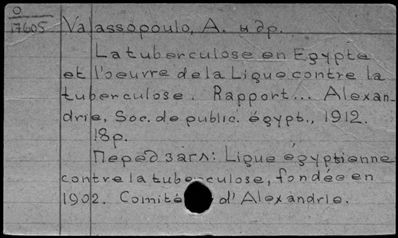 О
17605
Valassopoulo, A. и др.
La tuberculose en Egypte
et l'oeuvre de la Ligue contre la
tuberculose. Rapport... Alexan-
drie, Soc. de public. égypt., 1912.
18p.
Перед загл: Ligue égyptienne
contre la tuberculose, fondée en
1902. Comité d'Alexandrie.